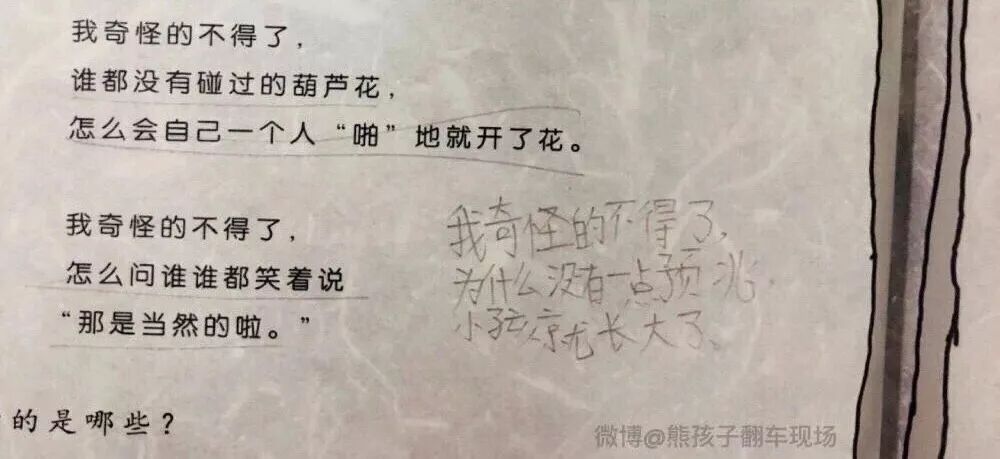 我奇怪的不得了，
谁都没有碰过的葫芦花，
怎么会自己一个人“啪”地就开了花。
我奇怪的不得了，
怎么问谁谁都笑着说
“那是当然的啦。”
我奇怪的不得了，
为什么没有一点预兆，
小孩就长大了、
的是哪些？
微博@熊孩子翻车现场